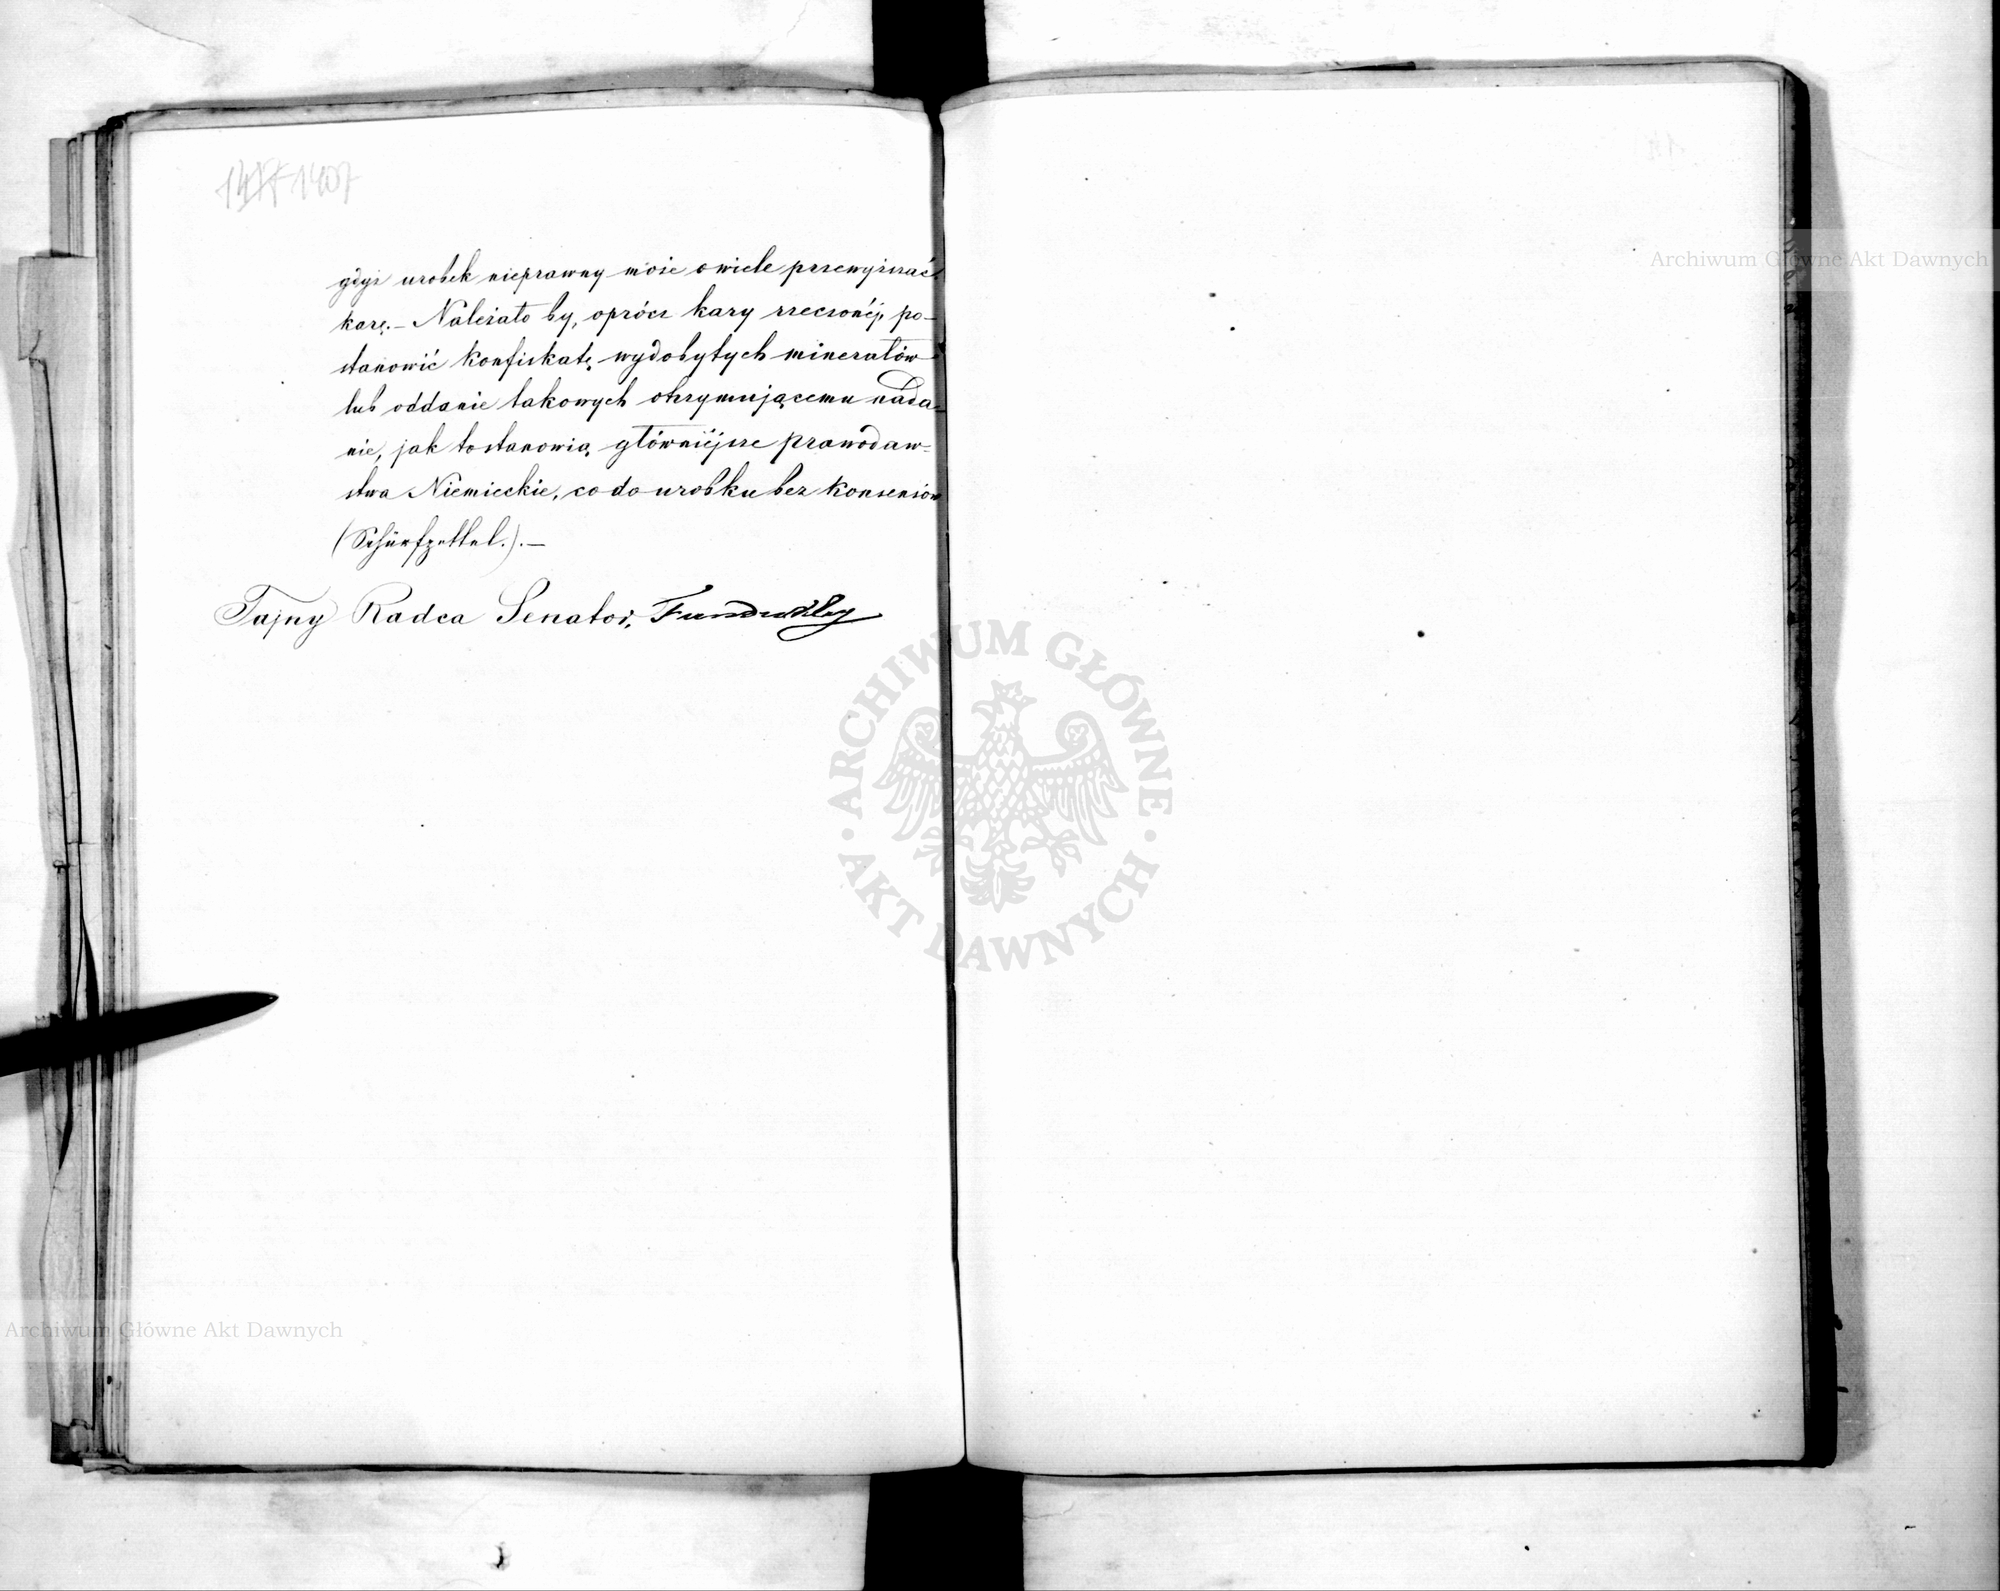 1407
gdyż urobek nieprawny może o wiele przewyższać
karę. — Należało by, oprócz kary rzeczonéj, po-
stanowić konfiskatę wydobytych minerałów
lub oddanie takowych otrzymującemu nada-
nie, jak to stanowią główniéjsze prawodaw-
stwa Niemieckie, co do urobku bez konsensów
(Schürfzettel.). —
Tajny Radca Senator, Fundukley
Archiwum Główne Akt Dawnych
ARCHIWUM GŁÓWNE
AKT DAWNYCH
Archiwum Główne Akt Dawnych